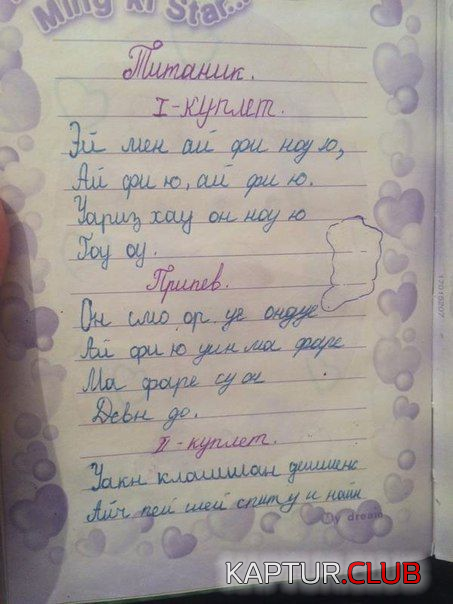 Ming xi Star...
Титаник.
I-куплет.
Эй мен ай фи ноу ю,
Ай фи ю, ай фи ю.
Уариз хау он ноу ю
Гоу оу.
Припев.
Он смо ор уе ондуе
Ай фи ю уин ма фаре
Ма фаре су он
Девн до.
II-куплет.
Уакн клашшан дишиенс
Айч пей шей спиту и найн
My dream
17015207
KAPTUR.CLUB